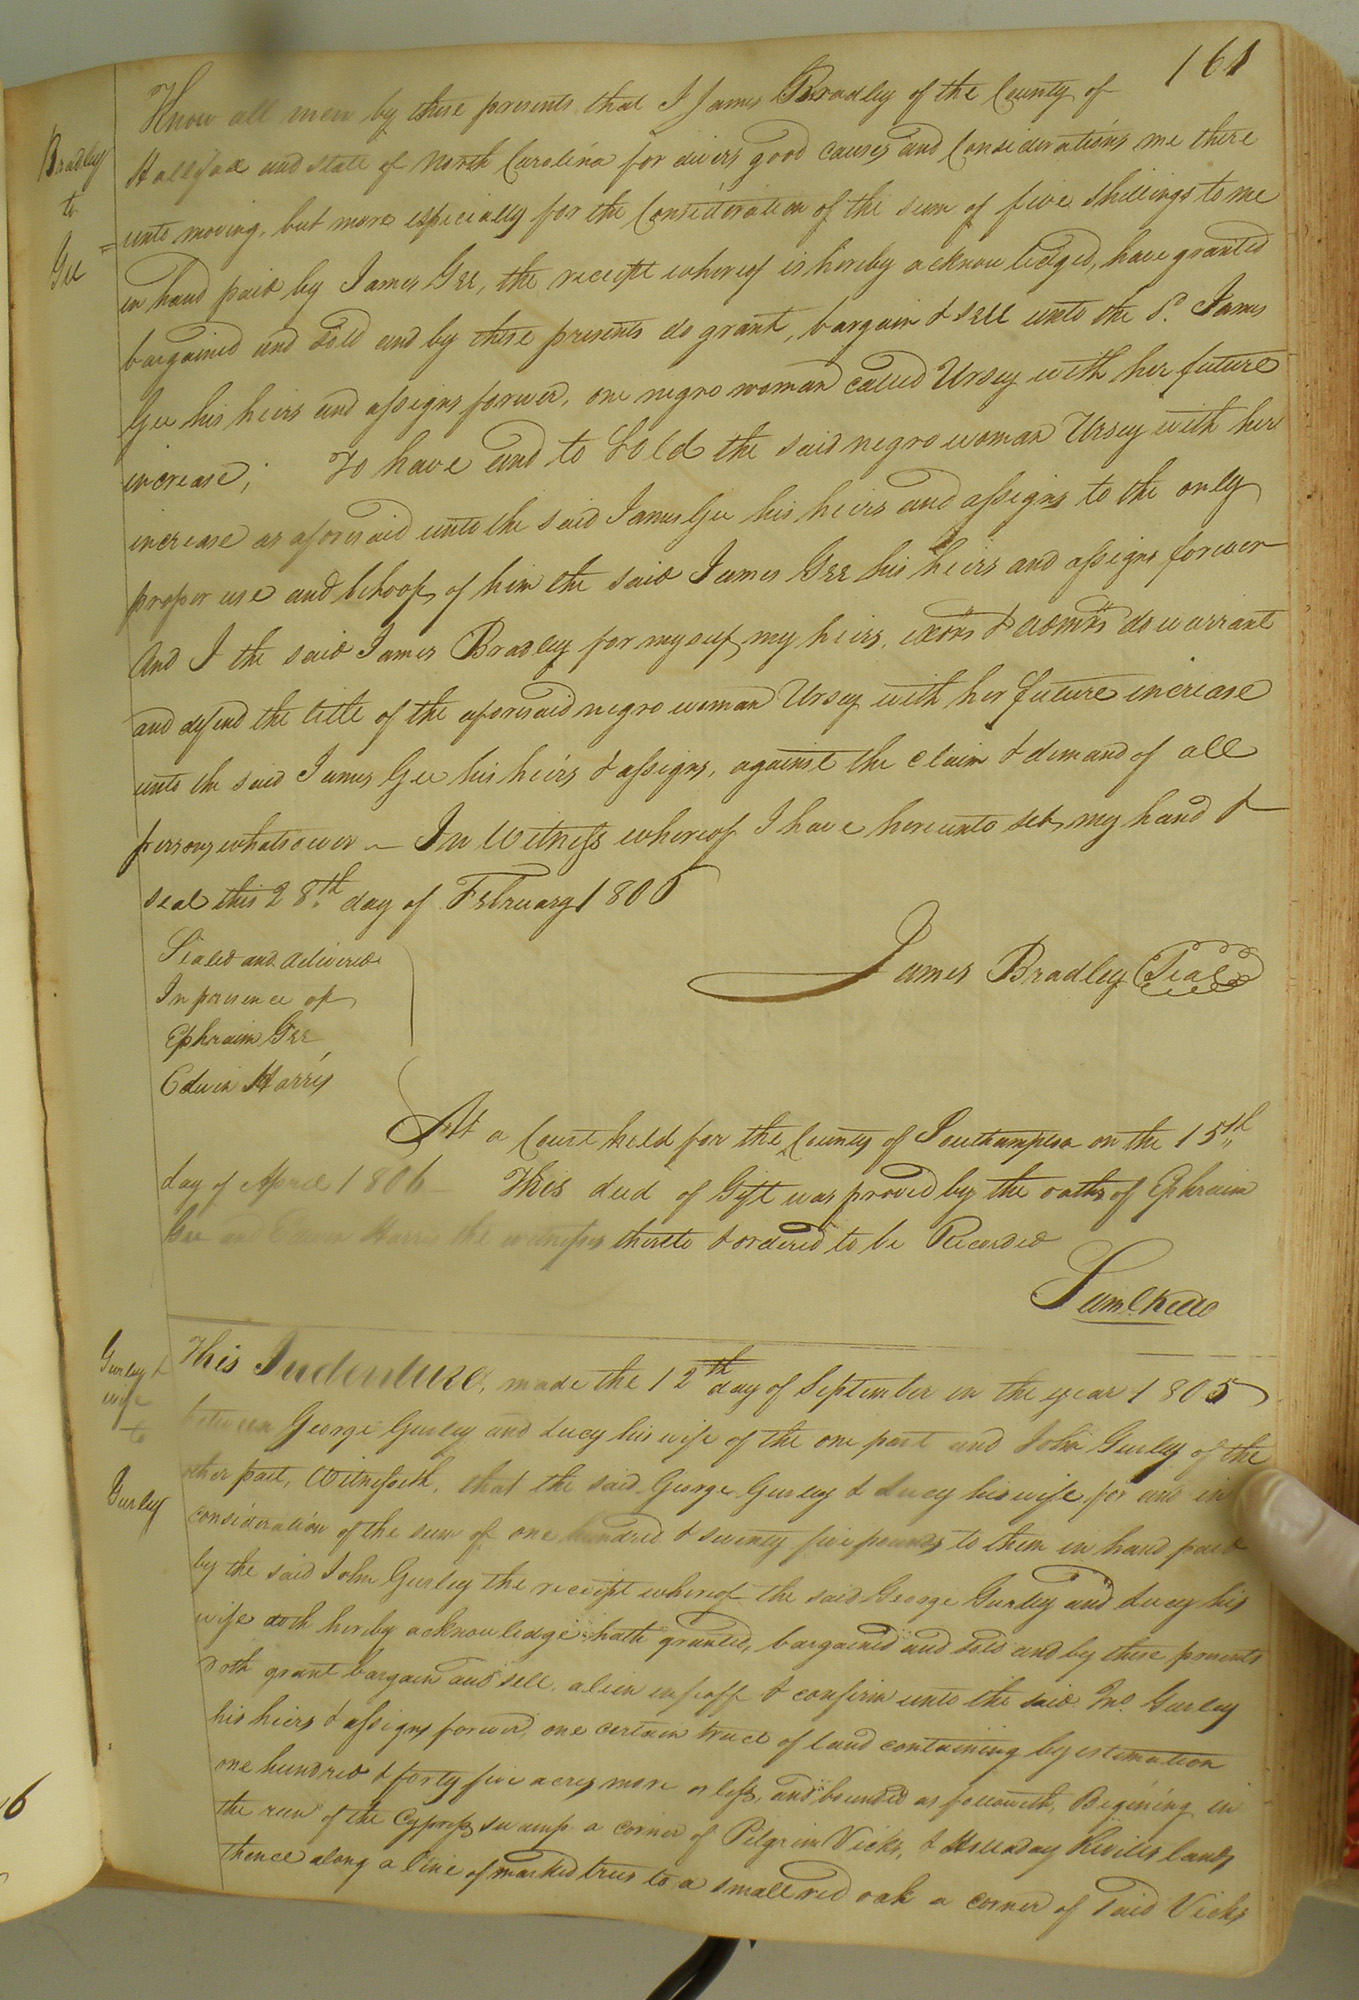 161
Bradley
to
Gee
Know all men by these presents that I James Bradley of the County of
Hallifax and State of North Carolina for divers good causes and Considerations me there
unto moving, but more especially for the Consideration of the sum of five shillings to me
in hand paid by James Gee, the receipt whereof is hereby acknowledged, have granted
bargained and sold and by these presents do grant, bargain & sell unto the sd. James
Gee his heirs and assigns forever, one negro woman called Ursey with her future
increase; To have and to hold the said negro woman Ursey with her
increase as aforesaid unto the said James Gee his heirs and assigns to the only
proper use and behoof of him the said James Gee his heirs and assigns forever
And I the said James Bradley for myself my heirs, exors & admrs do warrant
and defend the title of the aforesaid negro woman Ursey with her future increase
unto the said James Gee his heirs & assigns, against the claim & demand of all
persons whatsoever – In Witness whereof I have hereunto set my hand &
seal this 28th day of February 1806
Sealed and delivered
In presence of
Ephraim Gee
Edwin Harris
James Bradley Seal
At a Court held for the County of Southampton on the 15th
day of April 1806 This deed of Gift was proved by the oaths of Ephraim
Gee and Edwin Harris the witnesses thereto & ordered to be Recorded
Saml Kello
Gurley &
wife
to
Gurley
This Indenture, made the 12th day of September in the year 1805
between George Gurley and Lucy his wife of the one part and John Gurley of the
other part, Witnesseth, that the said George Gurley & Lucy his wife for and in
consideration of the sum of one hundred & seventy five pounds to them in hand paid
by the said John Gurley the receipt whereof the said George Gurley and Lucy his
wife doth hereby acknowledge hath granted, bargained and sold and by these presents
doth grant bargain and sell, alien enfeoff & confirm unto the said Jno. Gurley
his heirs & assigns forever, one certain tract of land containing by estimation
one hundred & forty five acres more or less, and bounded as followeth, Begining in
the run of the Cypress swamp a corner of Pilgrim Vicks, & Holladay Revills lands
thence along a line of marked trees to a small red oak a corner of said Vicks